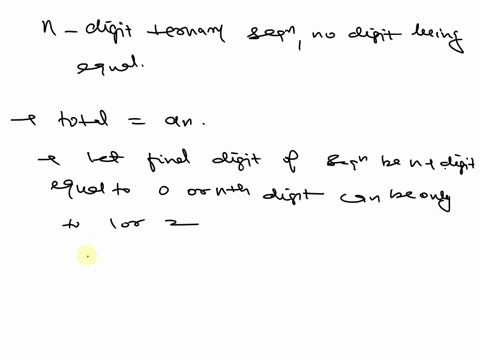 n - digit ternary seqn, no digit being
equal.
→ total = an.
→ Let final digit of seqn be n-1 digit
equal to 0 or nth digit can be only
to 1 or 2